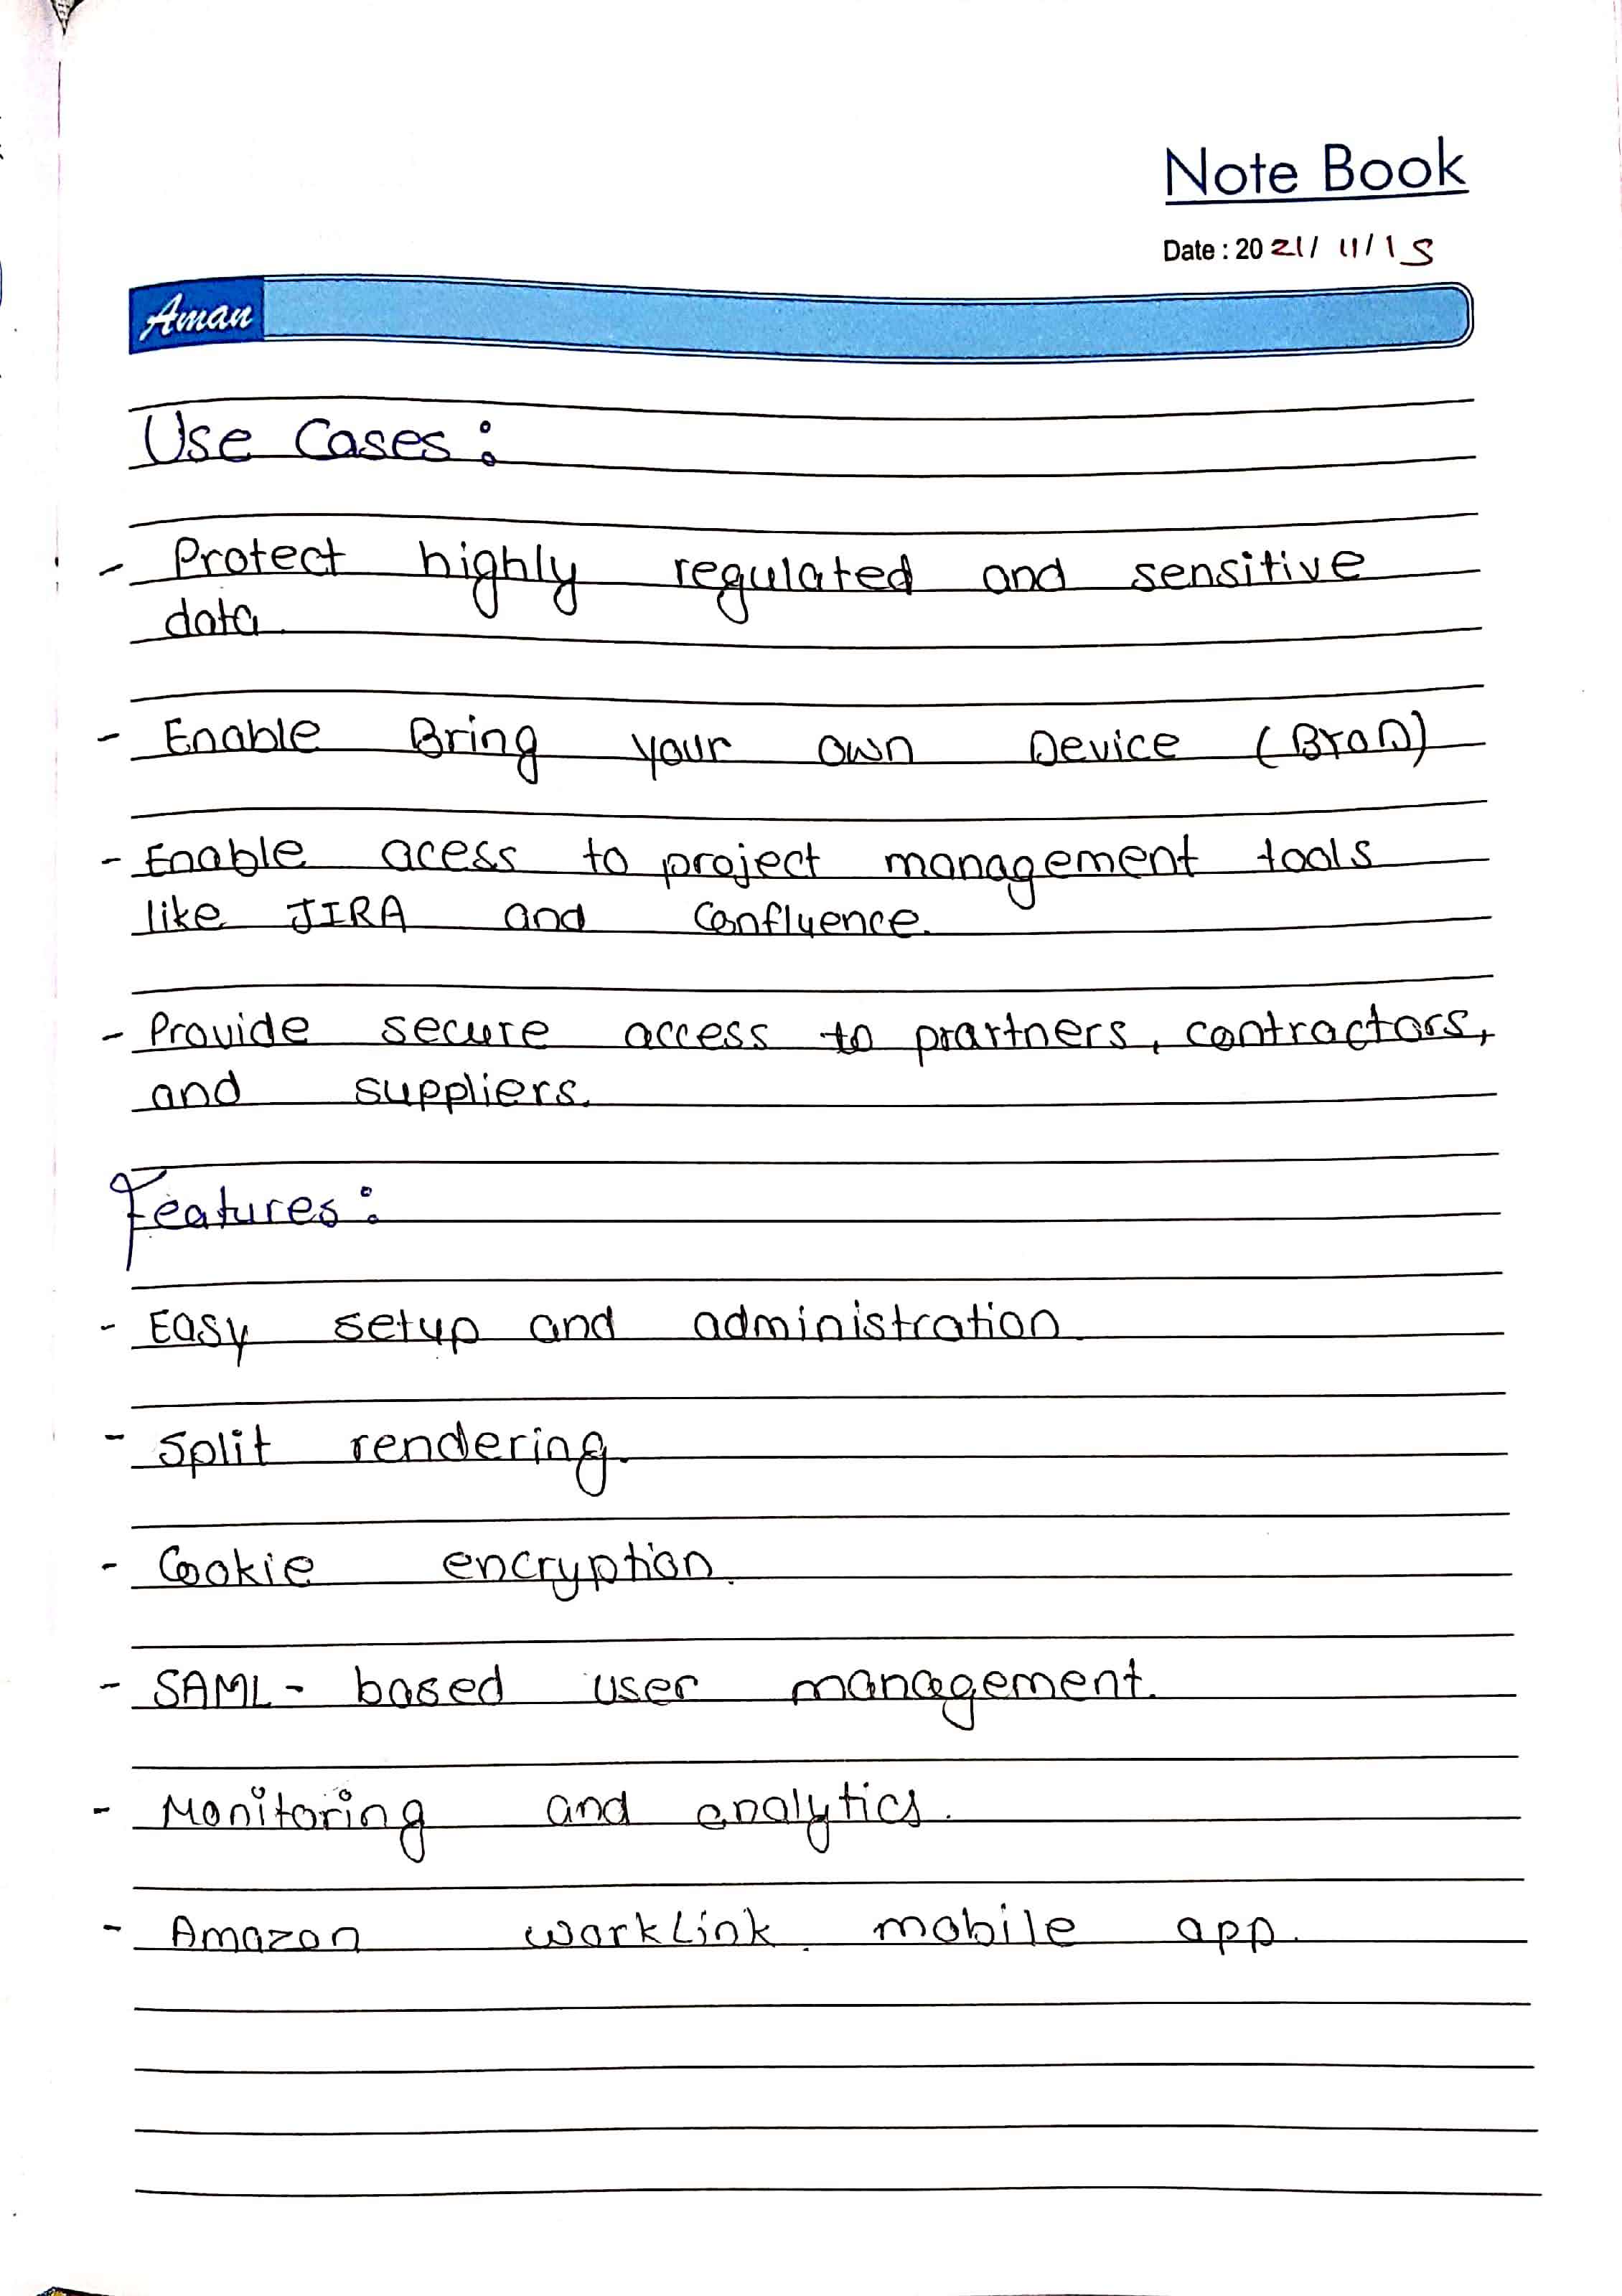 Note Book
Date : 2021/ 11/15
Aman
Use Cases :
- Protect highly regulated and sensitive
data.
- Enable Bring your own Device (BYOD)
- Enable acess to project management tools
like JIRA and Confluence.
- Provide secure access to prartners, contractors,
and suppliers.
Features :
- Easy setup and administration.
- Split rendering.
- Cookie encryption.
- SAML - based user management.
- Monitoring and analytics.
- Amazon workLink. mobile app.